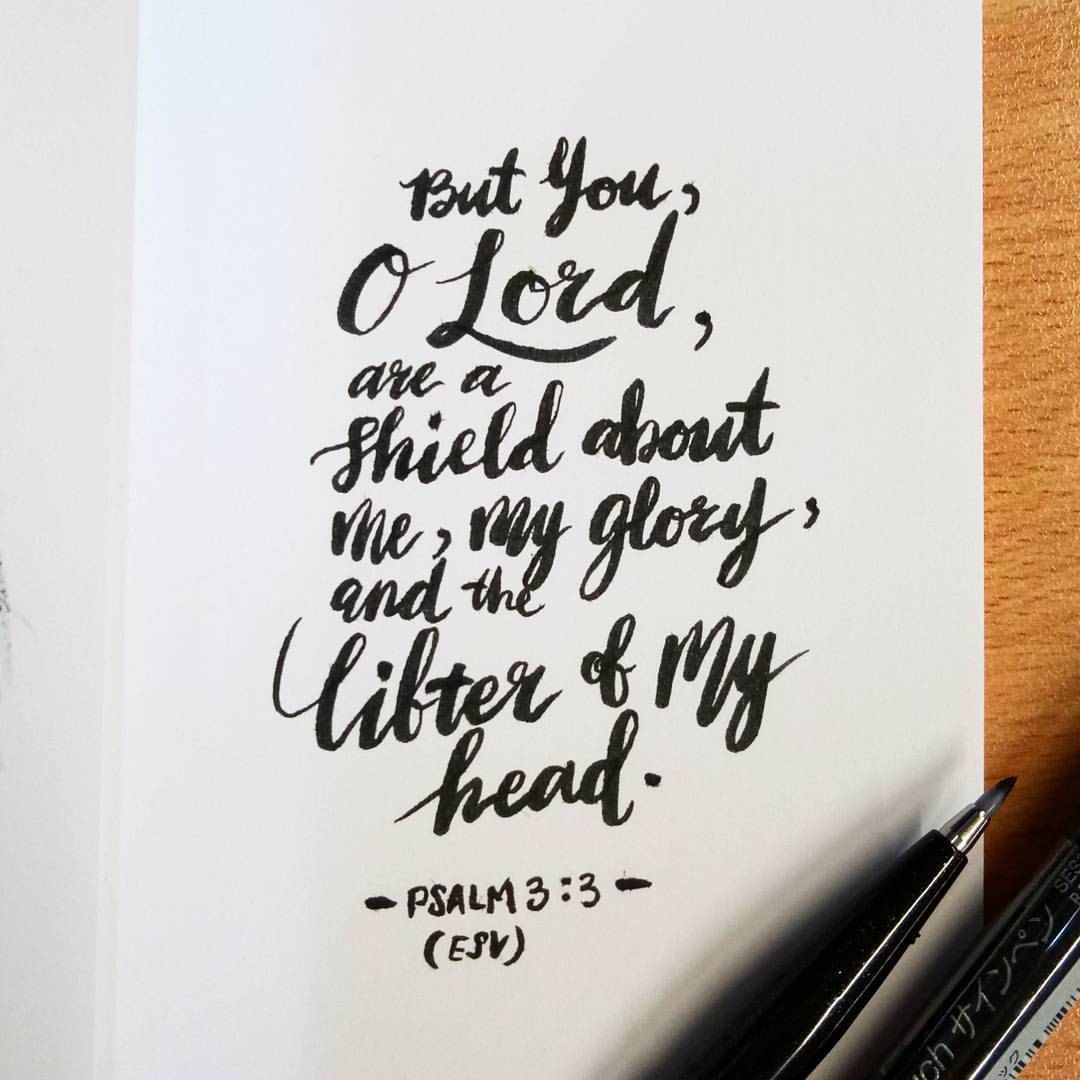 But You,
O Lord,
are a
shield about
me, my glory,
and the
lifter of My
head.
- PSALM 3:3 -
(ESV)
サインペン